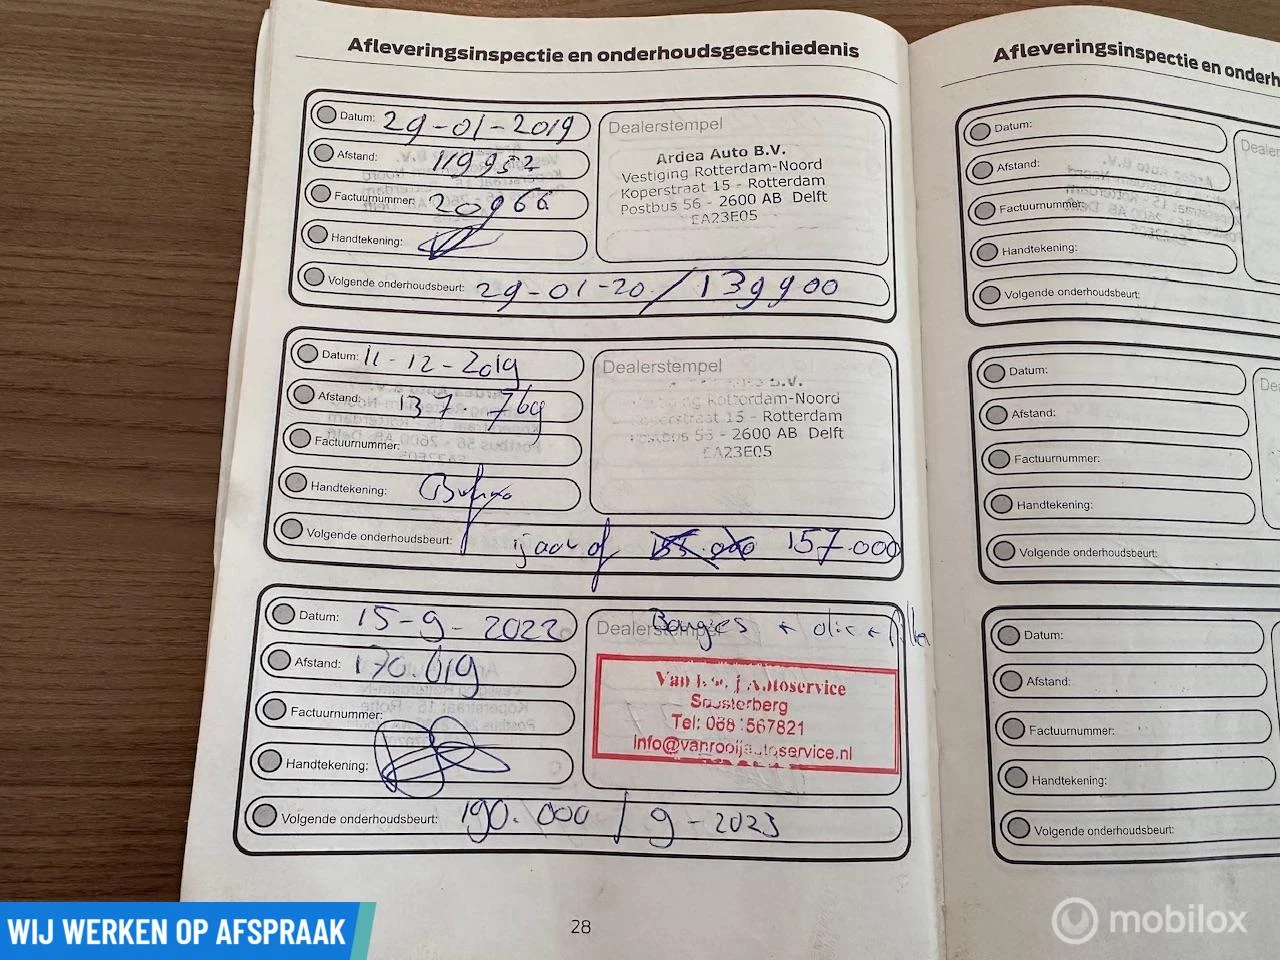 Afleveringsinspectie en onderhoudsgeschiedenis
Datum: 29-01-2019
Afstand: 119952
Factuurnummer: 20966
Handtekening:
Volgende onderhoudsbeurt: 29-01-20 / 139900
Dealerstempel
Ardea Auto B.V.
Vestiging Rotterdam-Noord
Koperstraat 15 - Rotterdam
Postbus 56 - 2600 AB Delft
EA23E05
Datum: 11-12-2019
Afstand: 137.769
Factuurnummer:
Handtekening:
Volgende onderhoudsbeurt: 1jaar of 157.000
Dealerstempel
B.V.
Rotterdam-Noord
15 - Rotterdam
- 2600 AB Delft
EA23E05
Datum: 15-9-2022
Afstand: 170.019
Factuurnummer:
Handtekening:
Volgende onderhoudsbeurt: 190.000 / 9-2023
Dealerstempel
Bougies + olie + filter
Van Autoservice
Soesterberg
Tel:
info@vanrooijautoservice.nl
28
Afleveringsinspectie en onderh
Datum:
Afstand:
Factuurnummer:
Handtekening:
Volgende onderhoudsbeurt:
Dealer
Datum:
Afstand:
Factuurnummer:
Handtekening:
Volgende onderhoudsbeurt:
De
Datum:
Afstand:
Factuurnummer:
Handtekening:
Volgende onderhoudsbeurt:
WIJ WERKEN OP AFSPRAAK
mobilox